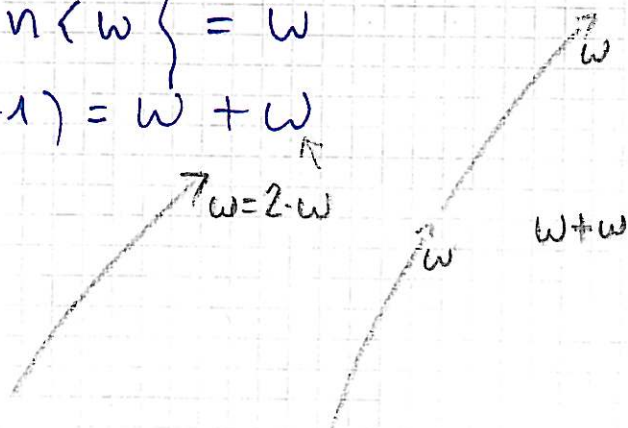 n < ω } = ω
+1) = ω + ω
ω
ω = 2·ω
ω
ω+ω